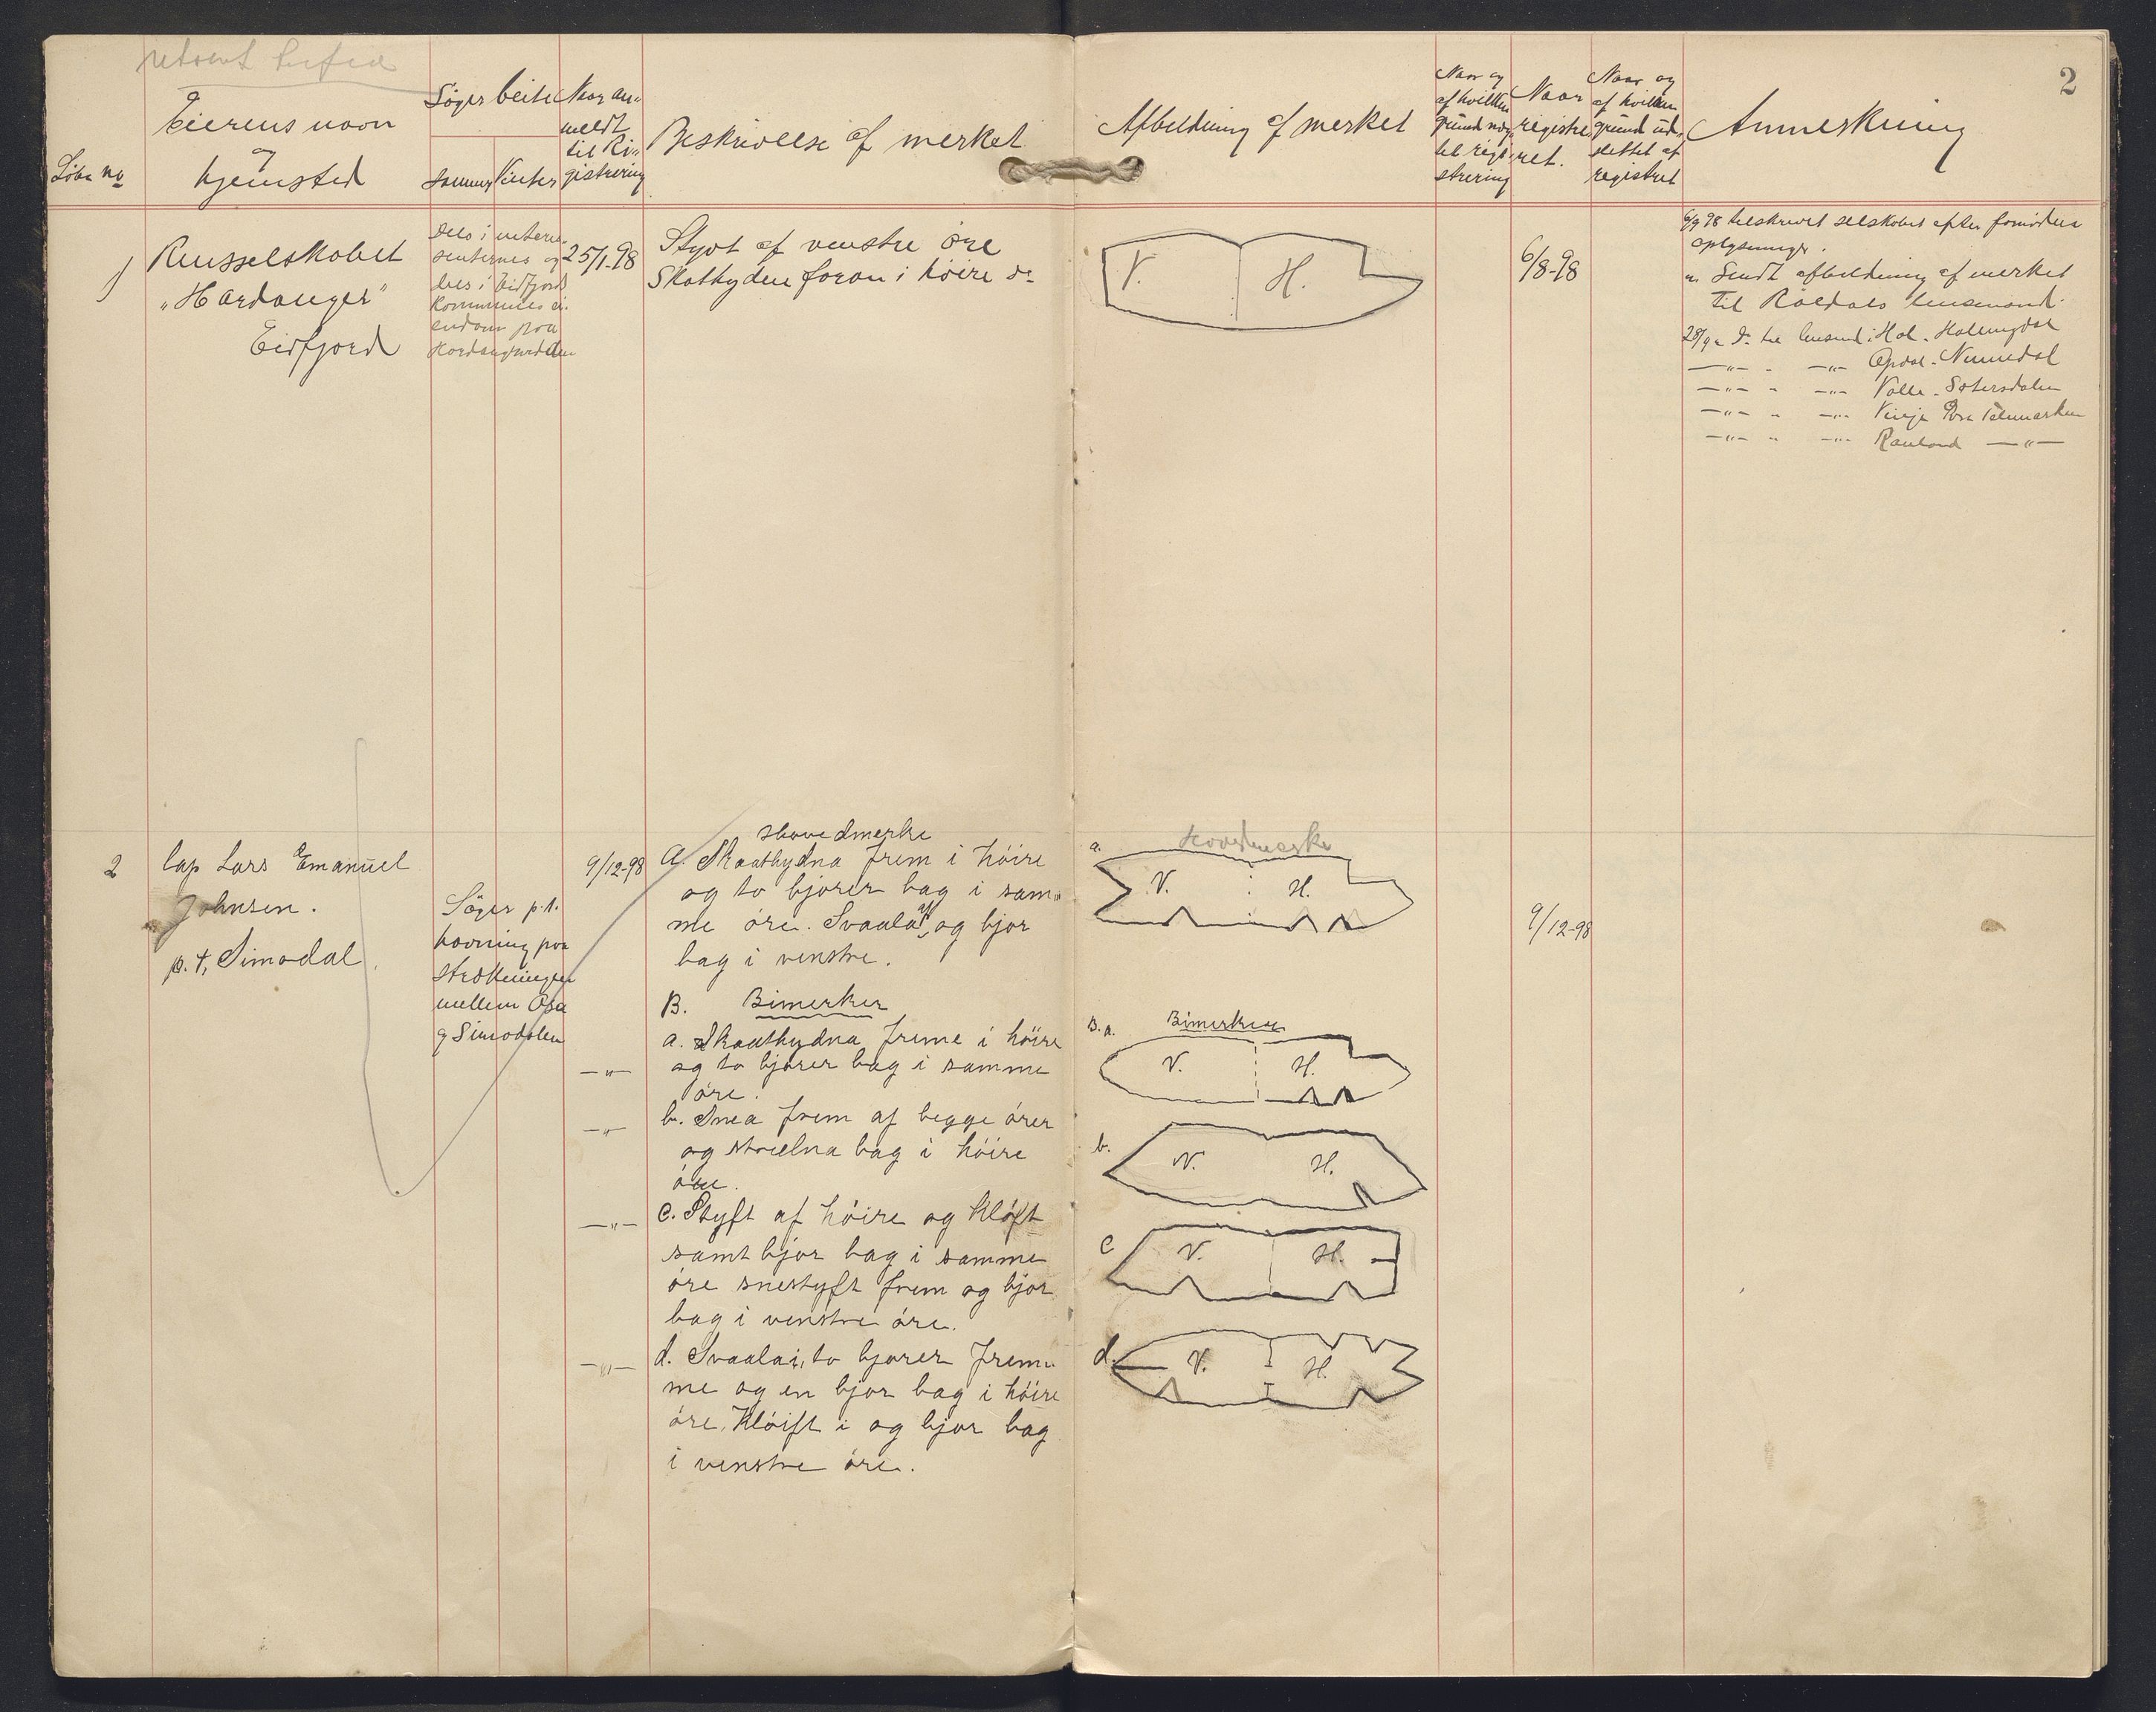 2
Löbe no
Eierens navn
og
hjemsted
Söger beite
Sommer
Vinter
Naar an-
meldt
til Re-
gistrering
Beskrivelse af merket
Afbildning af merket
Naar og
af hvilken
grund næg-
tet regi-
strering
Naar
registre-
ret.
Naar og
af hvilken
grund ud-
slettet af
registret
Anmerkning
1
Rensselskabet
"Hardanger"
Eidfjord
Dels i
og
dels i Eidfjord
kommunes ei-
endom paa
25/1-98
Styvt af venstre öre
Skathyden foran i höire do
V.
H.
6/8-98
6/9 98 tilskrevet selskabet efter fornödne
oplysninger.
" Sendt afbildning af merket
til Röldals lensmand.
28/9 " Do til lensmd i Hol - Hallingdal
—"— " —"— Opdal - Numedal
—"— " —"— Valle - Sætersdalen
—"— " —"— Vinje Övre Telemarken
—"— " —"— Rauland —"—
2
Lap Lars Emanuel
Johnsen.
p.t. Simodal
Söger p.t.
havning paa
strækningen
mellem Osa
og Simodalen
9/12-98
Hovedmerke
A. Skaathydna frem i höire
og to bjorer bag i sam-
me öre. Svaala af, og bjor
bag i venstre.
B. Bimerker
a. Skaathydna fremme i höire
—"— og to bjorer bag i samme
öre.
—"— b. Snea frem af begge örer
og strælna bag i höire
öre.
—"— c. Styft af höire og klöft
samt bjor bag i samme
öre snestyft frem og bjor
bag i venstre öre.
—"— d. Svaala i, to bjorer frem-
me og en bjor bag i höire
öre, klöift i og bjor bag
i venstre öre.
a. Hovedmerke
V.
H.
9/12-98
B. a. Bimerker
V.
H.
b.
V.
H.
c
V.
H.
d.
V.
H.